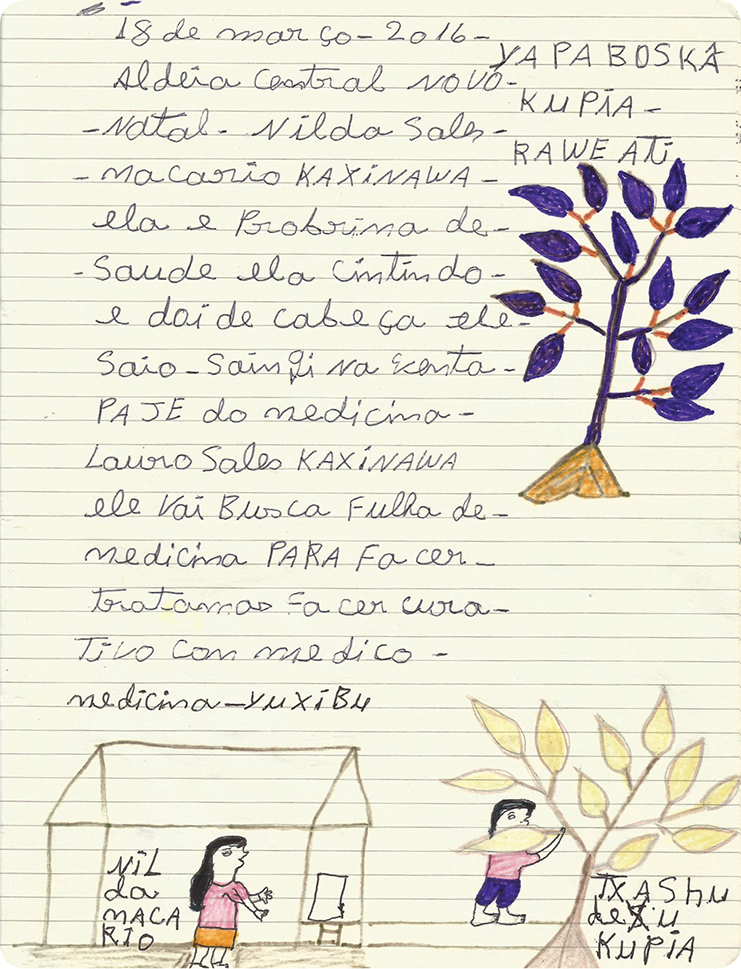 18 de março - 2016 -
Aldeia Central NOVO -
- Natal - Nilda Sales -
- macario KAXINAWA -
ela e Probrima de -
- Saude ela Cintindo -
e doi de cabeça ele -
Saio - Sain
PAJE do medicina -
Lauro Sales KAXINAWA
ele Vai Busca Fulha de -
medicina PARA Facer -
tratamas Facer cura -
Tivo Con medico -
medicina - YUXIBU
YAPA BOSKÂ
KUPIA -
RAWE ATI
NIL
da
MACA
RIO
TXASHU
KUPIA